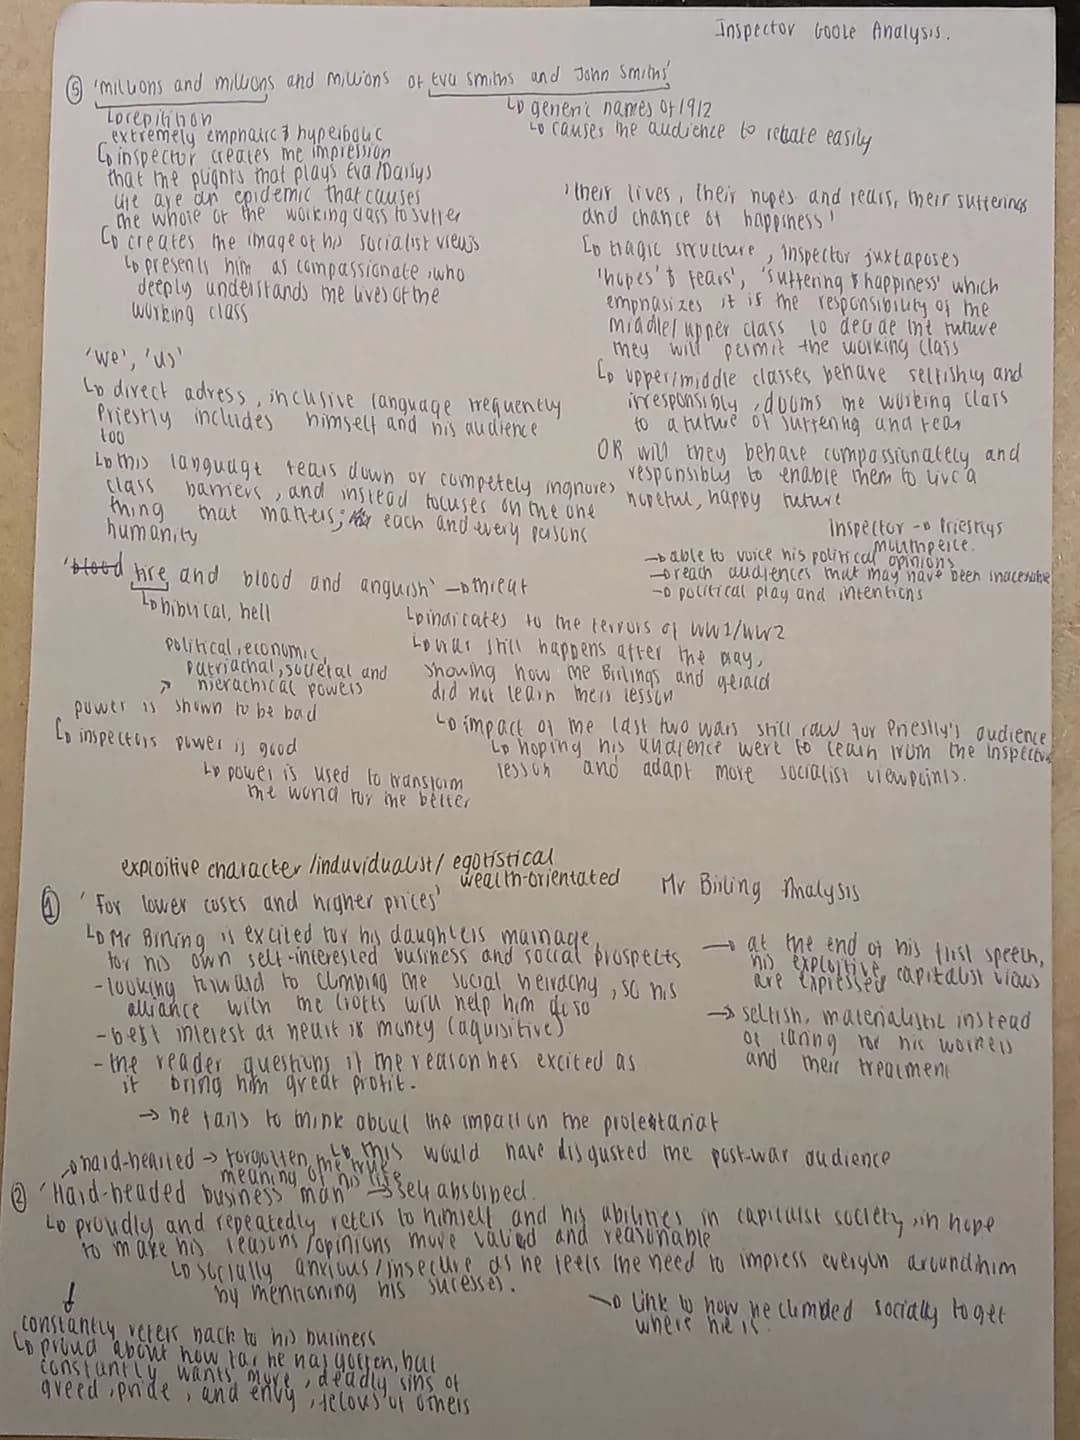 Inspector Goole Analysis.
⑤ 'millions and millions and millions of Eva Smiths and John Smiths'
↳ repitition
extremely emphatic & hyperbolic
↳ inspector creates the impression
that the plights that plays Eva/Daisys
life are an epidemic that causes
the whole of the working class to suffer
↳ creates the image of his socialist views
↳ presents him as compassionate, who
deeply understands the lives of the
working class
↳ generic names of 1912
↳ causes the audience to relate easily
'their lives, their hopes and fears, their sufferings
and chance of happiness'
↳ tragic structure, inspector juxtaposes
'hopes' & fears', 'suffering & happiness' which
emphasizes it is the responsibility of the
middle/upper class to decide the future
they will permit the working class
↳ upper/middle classes behave selfishly and
irresponsibly, dooms the working class
to a future of suffering and fear
OR will they behave compassionately and
responsibly to enable them to live a
hopeful, happy future
'we', 'us'
↳ direct adress, inclusive language frequently
Priestly includes himself and his audience
too
↳ this language tears down or competely ingnores
class barriers, and instead focuses on the one
thing that matters; each and every persons
humanity
Inspector → Priestlys
mouthpeice.
→ able to voice his political opinions
→ reach audiences that may have been inaccessible
→ political play and intentions
'blood fire and blood and anguish' → threat
↳ biblical, hell
↳ indicates to the terrors of WW1/WW2
↳ war still happens after the play,
showing how the Birlings and gerald
did not learn their lesson
↳ impact of the last two wars still raw for Priestly's audience
↳ hoping his audience were to learn from the Inspectors
lesson and adapt more socialist viewpoints.
political, economic,
patriachal, societal and
hierachical powers
power is shown to be bad
↳ inspectors power is good
↳ power is used to transform
the world for the better
exploitive character /induvidualist/ egotistical
wealth-orientated
Mr Birling Analysis
① 'For lower costs and higher prices'
↳ Mr Birling is excited for his daughters marriage,
for his own self-interested business and social prospects
- looking forward to climbing the social heirachy, so his
alliance with the Crofts will help him do so
- best interest at heart is money (aquisitive)
- the reader questions if the reason hes excited as
it bring him great profit.
→ he fails to think about the impact on the proletariat
↳ this would have disgusted the post-war audience
→ at the end of his first speech,
his exploitive, capitalist views
are expressed
→ selfish, materialistic instead
of caring for his workers
and their treatment
hard-hearted → forgotten the true
meaning of his life
② 'Hard-headed business man' → self absorbed.
↳ proudly and repeatedly refers to himself and his abilities in capitalst society, in hope
to make his reasons/opinions more valied and reasonable
↳ socially anxious/insecure as he feels the need to impress everyon around him
by mentioning his sucesses.
→ link to how he climbed socially to get
where he is.
constantly refers back to his business
↳ proud about how far he has gotten, but
constantly wants more, deadly sins of
greed, pride, and envy, jelous of others